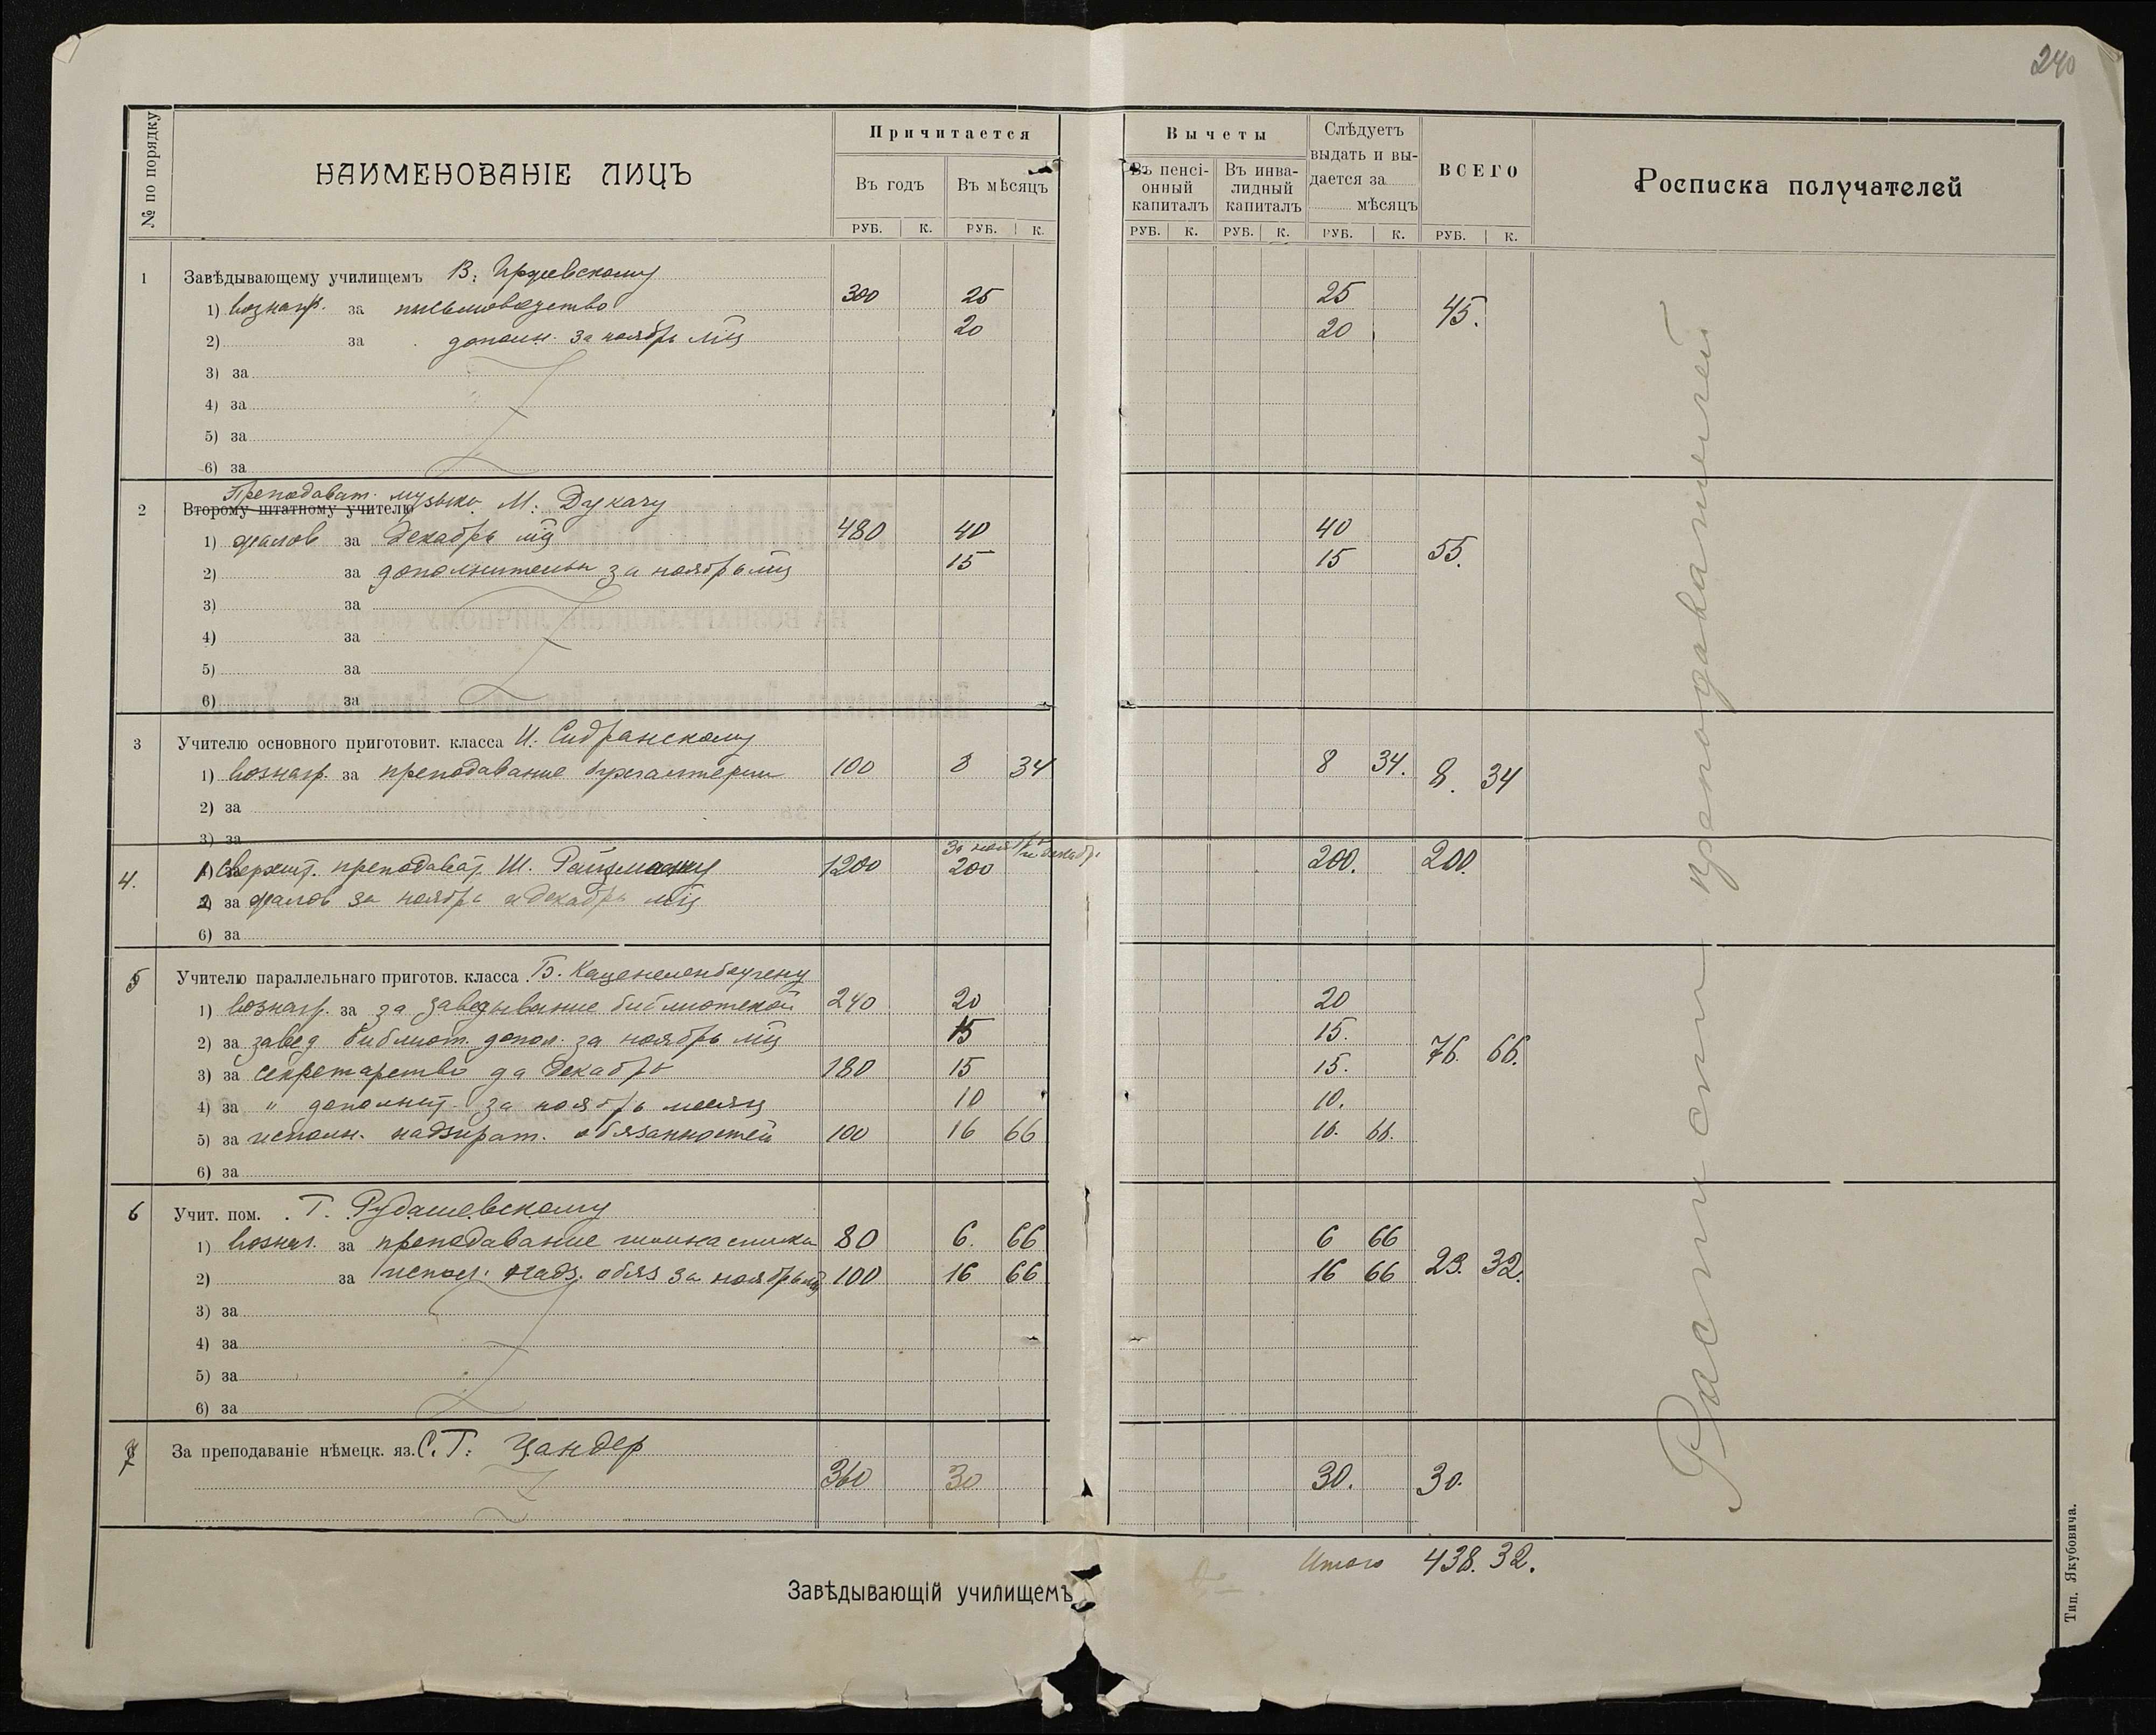 240
№ по порядку
НАИМЕНОВАНІЕ ЛИЦЪ
Причитается
Въ годъ
Въ мѣсяцъ
РУБ. К. РУБ. К.
Вычеты
Въ пенсі-
онный
капиталъ
Въ инва-
лидный
капиталъ
Слѣдуетъ
выдать и вы-
дается за
мѣсяцъ
ВСЕГО
Росписка получателей
РУБ. К. РУБ. К. РУБ. К. РУБ. К.
1 Завѣдывающему училищемъ В.
1) вознагр. за письмоводство 300 25 25 45.
2) за дополн. за ноябрь мц 20 20
3) за
4) за
5) за
6) за
Преподават. музыки М. Дукачу
2 Второму штатному учителю
1) жалов за декабрь мц 480 40 40
2) за дополнительн за ноябрь мц 15 15 55.
3) за
4) за
5) за
6) за
3 Учителю основного приготовит. класса И. Сидранскому
1) вознагр. за преподавание бухгалтерии 100 8 34 8 34. 8. 34
2) за
3) за
за ноябрь и декабр.
4. Сверхшт. преподават. Ш. 1200 200 200. 200.
за жалов за ноябрь и декабрь мц
6) за
5 Учителю параллельнаго приготов. класса Б. Каценеленбоугену
1) вознагр. за за заведывание библиотекой 240 20 20
2) за завед библиот. допол. за ноябрь мц 15 15.
3) за секретарство за декабрь 180 15 15. 76. 66.
4) за " дополнит. за ноябрь месяц 10 10.
5) за исполн. надзират. обязанностей 100 16 66 16. 66.
6) за
6 Учит. пом. Г. Рудашевскому
1) вознаг. за преподавание 80 6. 66 6 66
2) за испол. надз. обяз за ноябрь мц 100 16 66 16 66 23. 32.
3) за
4) за
5) за
6) за
7 За преподаваніе нѣмецк. яз. С. Г. Цандер
360 30 30. 30.
Итого 438. 32.
Завѣдывающій училищемъ
Расписки преподавателей
Тип. Якубовича.